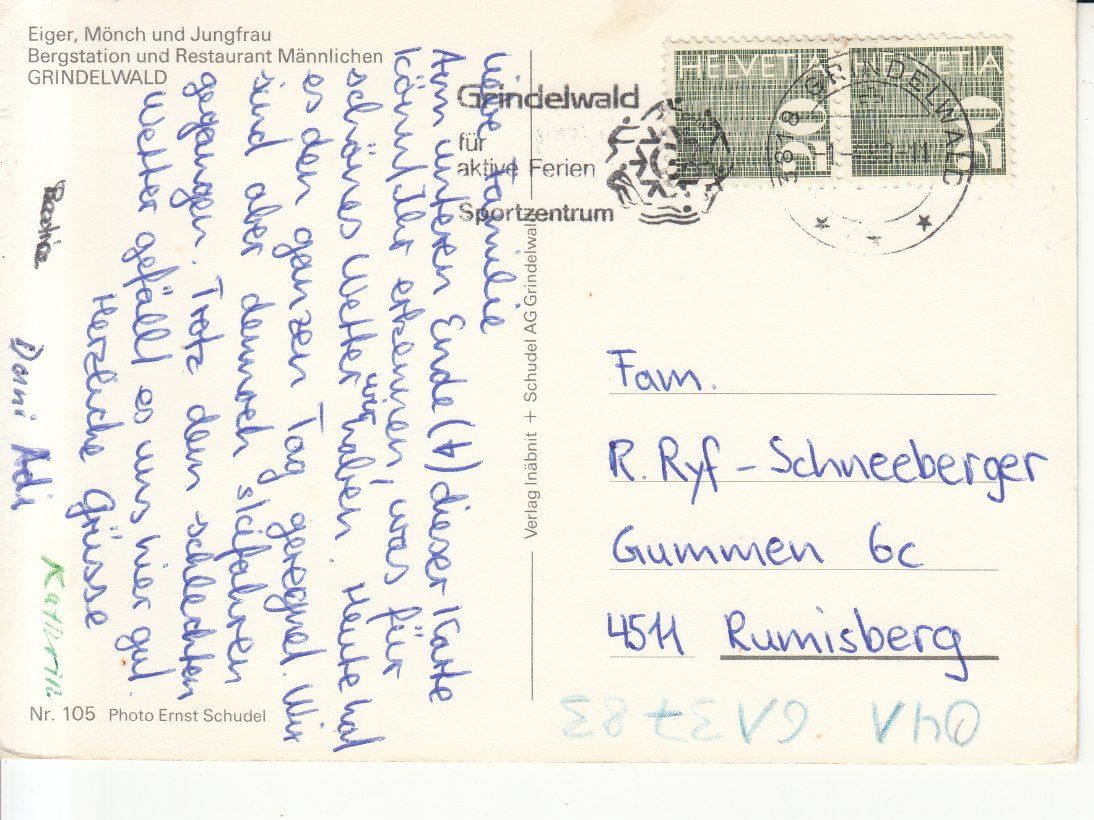 Eiger, Mönch und Jungfrau
Bergstation und Restaurant Männlichen
GRINDELWALD
Liebe Familie
Am unteren Ende (A) dieser Karte
könnt Ihr erkennen, was für
schönes Wetter wir haben. Heute hat
es den ganzen Tag geregnet. Wir
sind aber dennoch skifahren
gegangen. Trotz dem schlechten
Wetter gefällt es uns hier gut.
Herzliche Grüsse
Dani Adi
Kathrin
Nr. 105 Photo Ernst Schudel
Verlag Inäbnit + Schudel AG Grindelwald
Grindelwald
für
aktive Ferien
Sportzentrum
HELVETIA
50
HELVETIA
50
3818 GRINDELWALD
Fam.
R. Ryf - Schneeberger
Gummen 6c
4511 Rumisberg